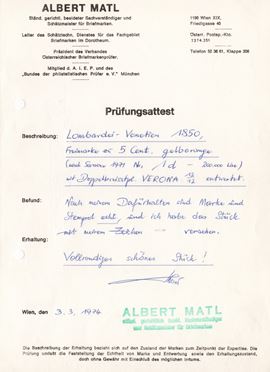 ALBERT MATL
Ständ. gerichtl. beeideter Sachverständiger und
Schätzmeister für Briefmarken.
Leiter des Schätzteams, Dienstes für das Fachgebiet
Briefmarken im Dorotheum.
Präsident des Verbandes
Österreichischer Briefmarkenprüfer.
Mitglied d. A. I. E. P. und des
„Bundes der philatelistischen Prüfer e. V." München
1190 Wien XIX,
Friedlgasse 40
Österr. Postspk.-Kto.
Telefon 52 36 61, Klappe 208
Prüfungsattest
Beschreibung: Lombardei-Venetien 1850,
Freimarke zu 5 Cent. gelborange
(nach Sassone 1971 No. 1d - 200.000 Lire)
mit Doppelkreisstpl. VERONA entwertet.
Befund: Nach meinem Dafürhalten sind Marke und
Stempel echt, und ich habe das Stück
mit meinem Zeichen versehen.
Erhaltung:
Vollrandiges schönes Stück!
Wien, den 3.3.1974
ALBERT MATL
ständ. gerichtl. beeid. Sachverständiger
und Schätzmeister für Briefmarken
Die Beschreibung der Erhaltung bezieht sich auf den Zustand der Marken zum Zeitpunkt der Expertise. Die
Prüfung umfaßt die Feststellung der Echtheit von Marke und Entwertung sowie den Erhaltungszustand,
doch ohne Gewähr mit Einschluß des möglichen Irrtums.